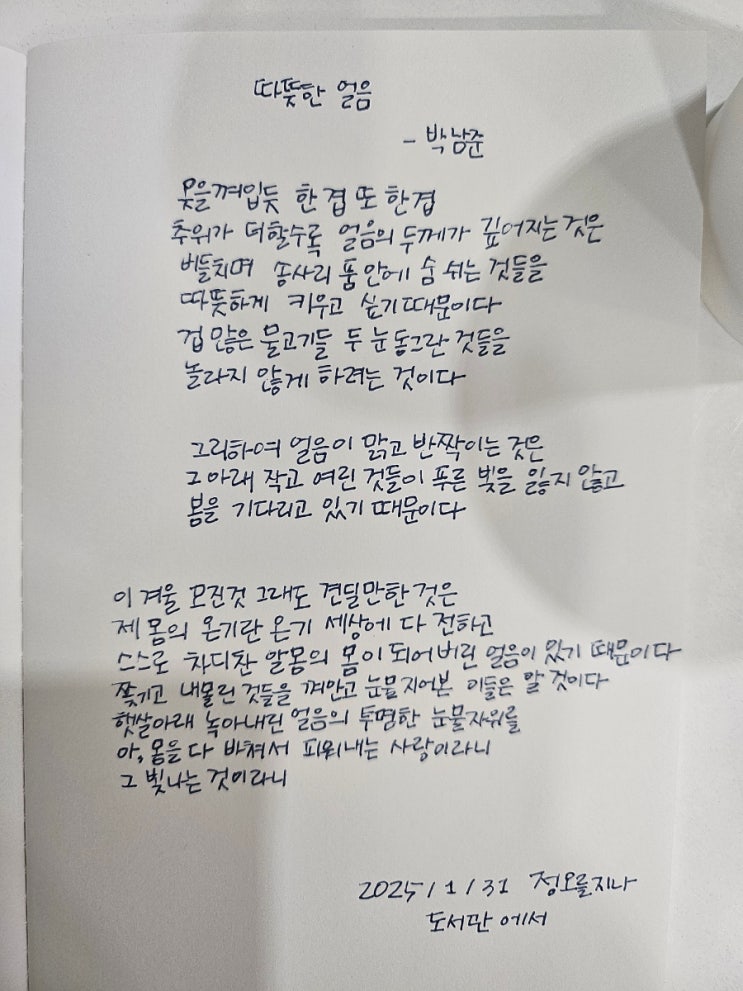 따뜻한 얼음
- 박남준
옷을 껴입듯 한 겹 또 한 겹
추위가 더할수록 얼음의 두께가 깊어지는 것은
버들치며 송사리 품 안에 숨 쉬는 것들을
따뜻하게 키우고 싶기 때문이다
겁 많은 물고기들 두 눈 동그란 것들을
놀라지 않게 하려는 것이다
그리하여 얼음이 맑고 반짝이는 것은
그 아래 작고 여린 것들이 푸른 빛을 잃지 않고
봄을 기다리고 있기 때문이다
이 겨울 모진것 그래도 견딜만한 것은
제 몸의 온기란 온기 세상에 다 전하고
스스로 차디찬 알몸의 몸이 되어버린 얼음이 있기 때문이다
쫓기고 내몰린 것들을 껴안고 눈물지어본 이들은 알 것이다
햇살아래 녹아내린 얼음의 투명한 눈물자위를
아, 몸을 다 바쳐서 피워내는 사랑이라니
그 빛나는 것이라니
2025/1/31 정오를지나
도서관에서